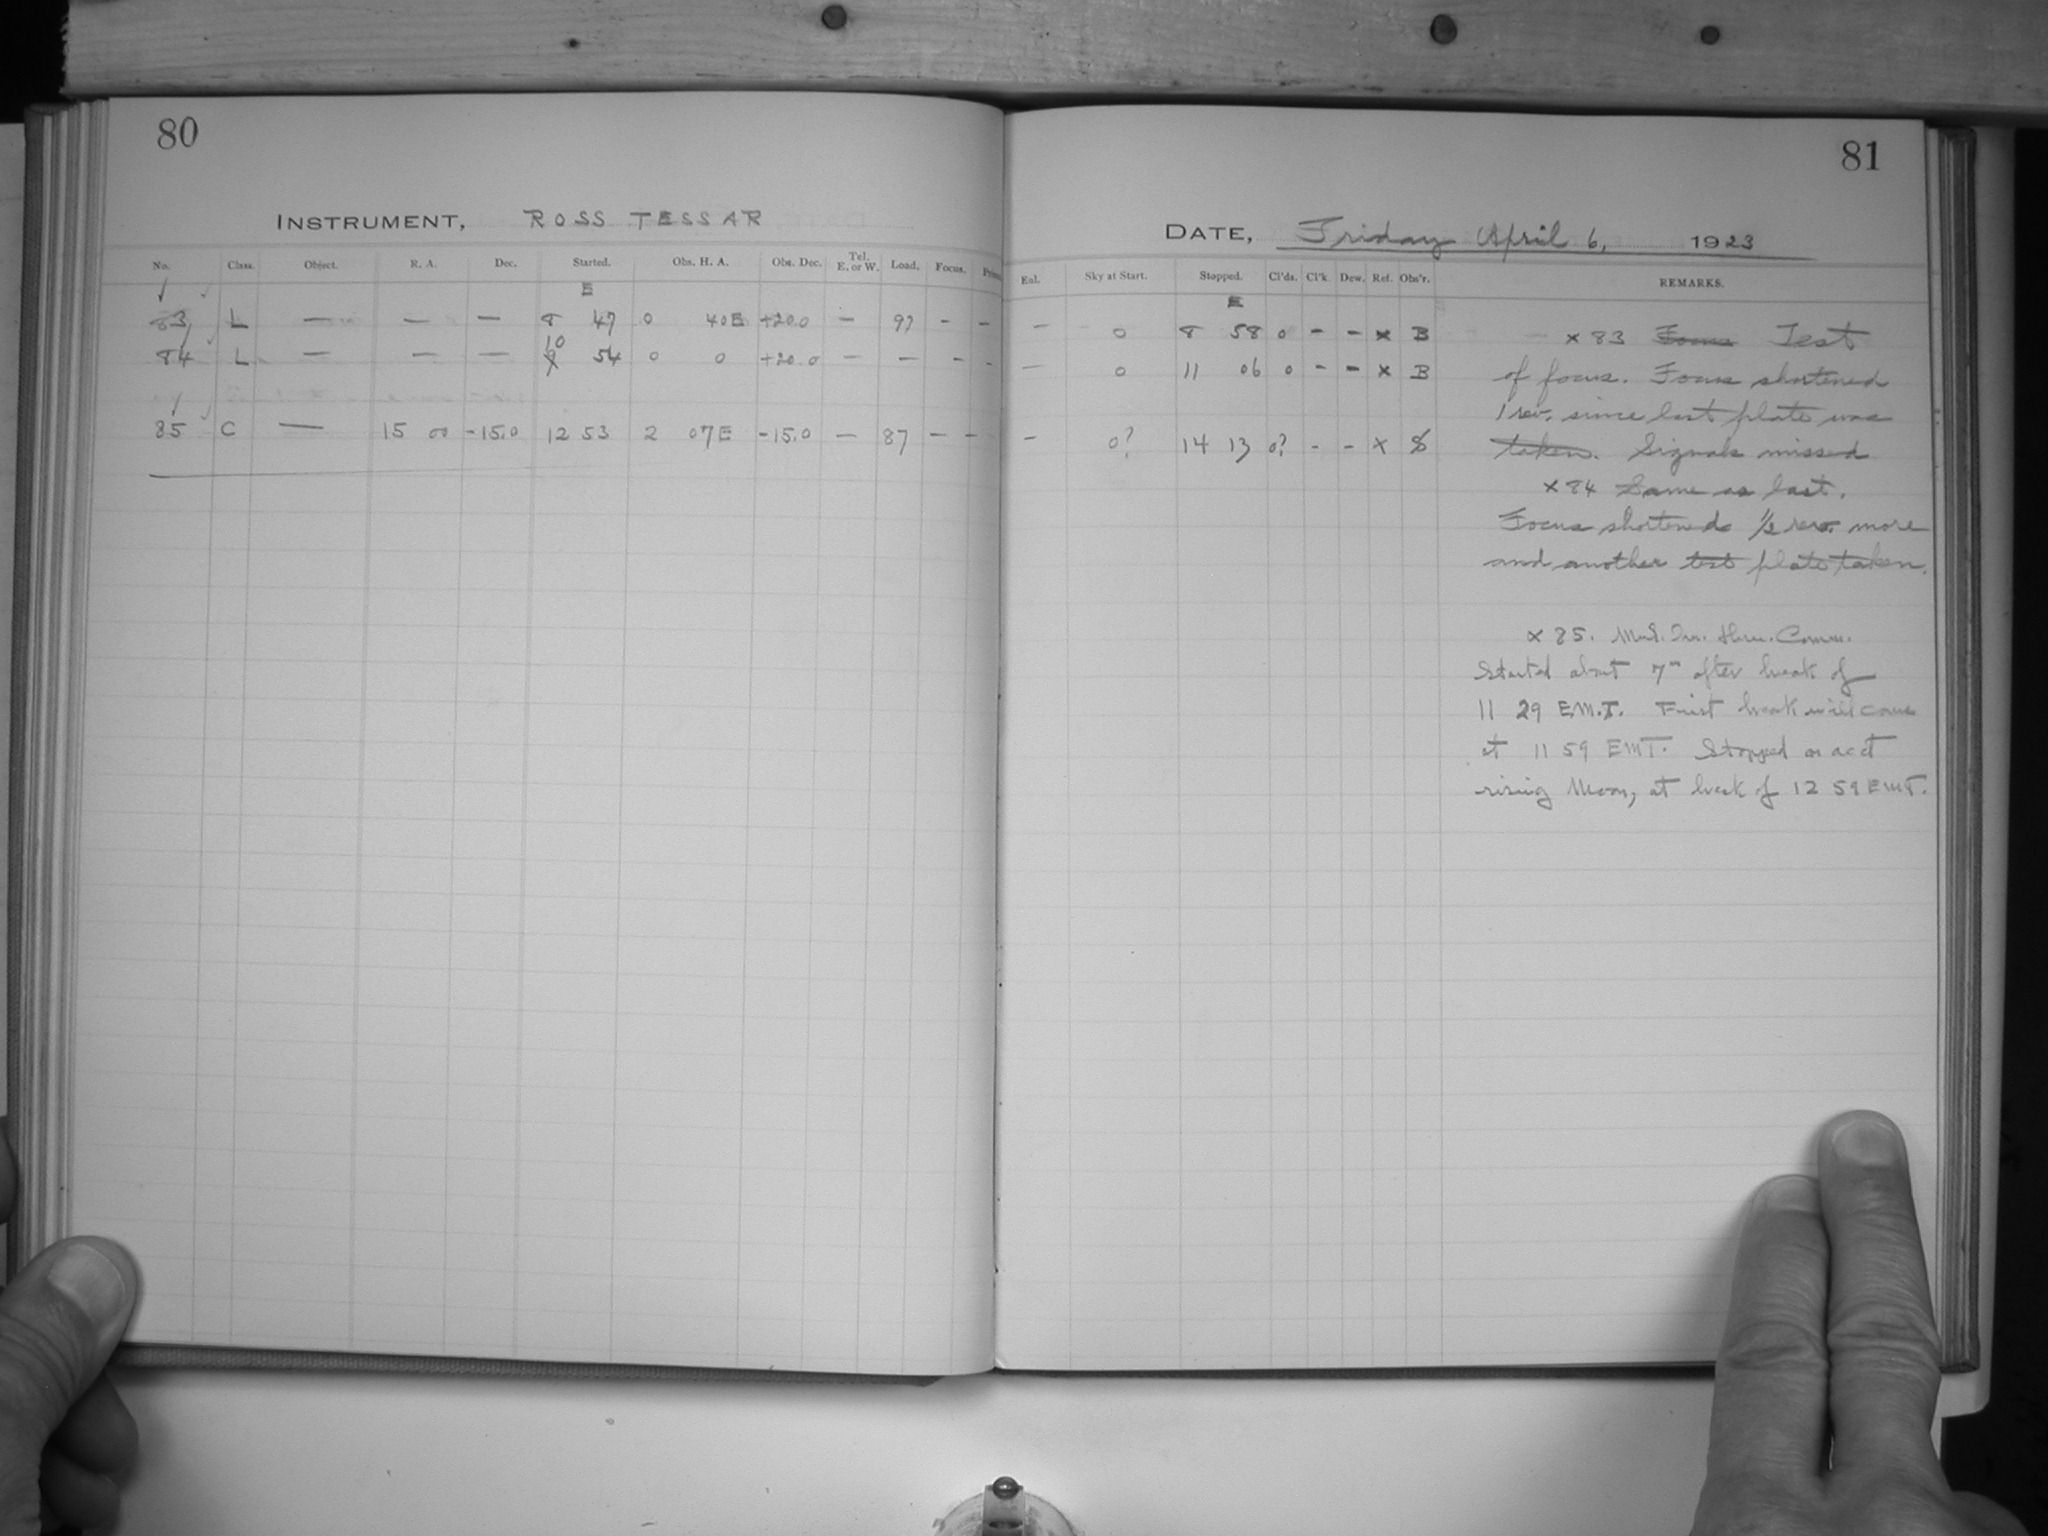 80
INSTRUMENT, ROSS TESSAR
No. Class. Object. R. A. Dec. Started. Obs. H. A. Obs. Dec. Tel. E. or W. Load. Focus.
E
83 L — — — 8 47 0 40E +20.0 — 97 - -
10
84 L — — — 9 54 0 0 +20.0 — — - -
85 C — 15 00 -15.0 12 53 2 07E -15.0 — 87 - -
81
DATE, Friday April 6, 1923
Eal. Sky at Start. Stopped. Cl'ds. Cl'k. Dew. Ref. Obs'r. REMARKS.
E
— 0 8 58 0 - - x B
— 0 11 06 0 - - x B
- 0? 14 13 0? - - x
x 83 Focus Test
of focus. Focus shortened
1 rev. since last plate was
taken. Signals missed
x 84 Same as last.
Focus shortened 1/2 rev. more
and another test plate taken.
x 85. Comm.
Started about 7m after break of
11 29 E.M.T. First break will come
at 11 59 EMT. Stopped on acct
rising Moon, at break of 12 59 EMT.